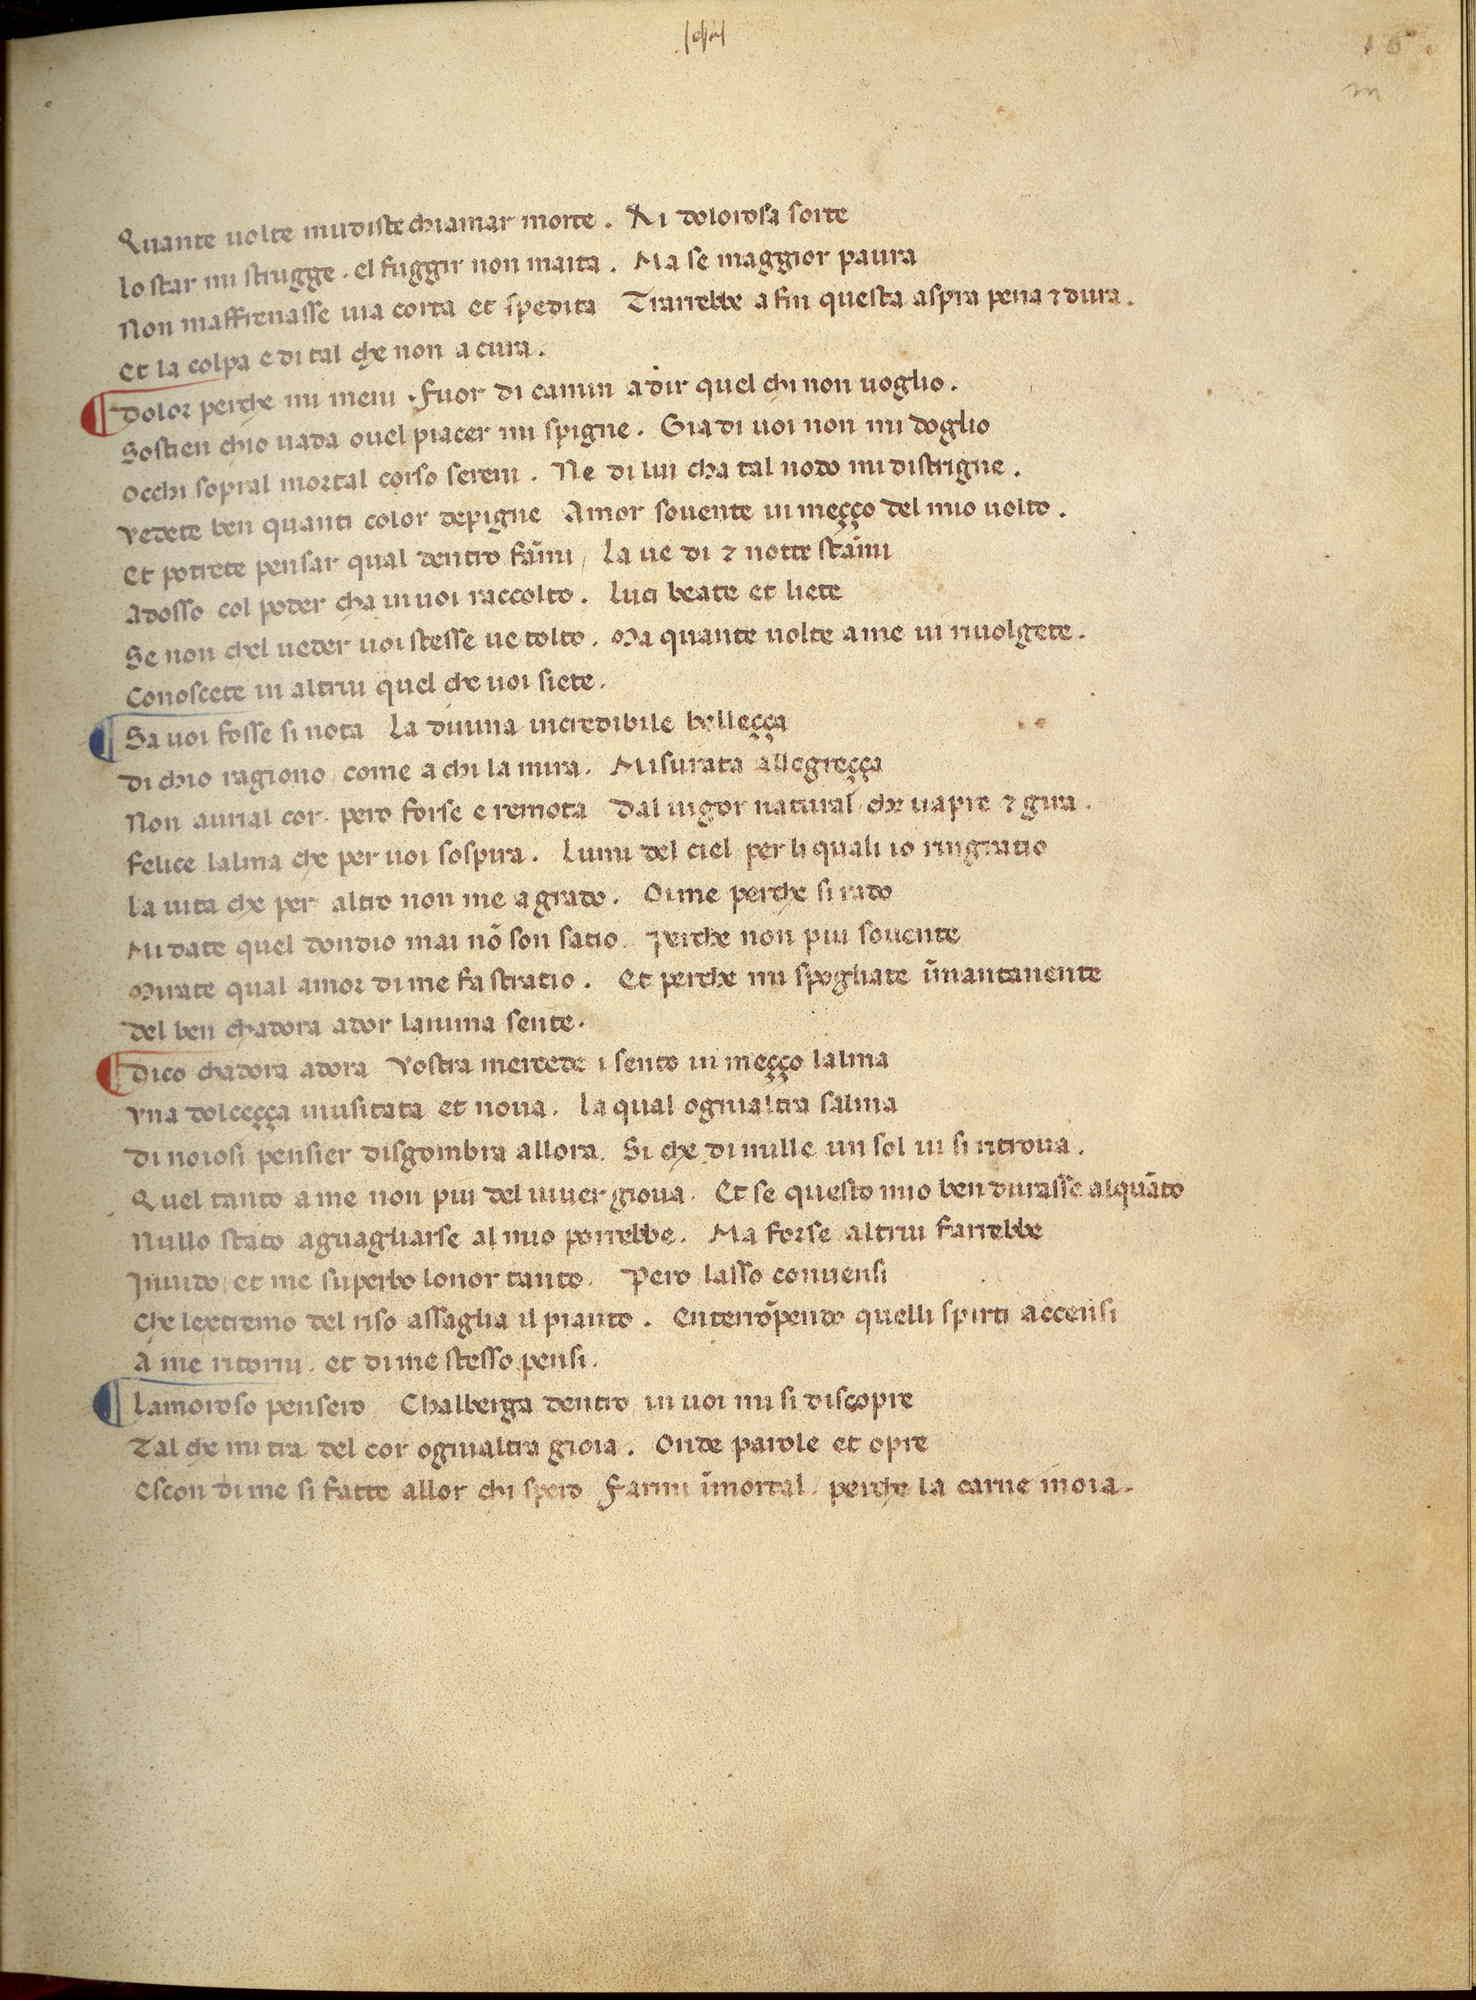 Quante uolte mudiste chiamar morte. Ai dolorosa sorte
lo star mi strugge. el fuggir non maita. Ma se maggior paura
Non maffrenasse uia corta et spedita Trarrebbe a fin questa aspra pena ⁊ dura.
Et la colpa e di tal che non a cura.
Dolor perche mi meni. Fuor di camin a dir quel chi non uoglio.
Sostien chio uada ouel piacer mi spigne. Gia di uoi non mi doglio
occhi sopral mortal corso sereni. Ne di lui cha tal nodo mi distrigne.
Vedete ben quanti color depigne Amor souente in meçço del mio uolto.
Et potrete pensar qual dentro fāmi / La ue di ⁊ notte stāmi
Adosso col poder cha in uoi raccolto. Luci beate et liete
Se non chel ueder uoi stesse ue tolto. Ma quante uolte a me ui riuolgete.
Conoscete in altrui quel che uoi siete.
Sa uoi fosse si nota La diuina incredibile belleçça
di chio ragiono come a chi la mira. Misurata allegreçça
Non auria l cor. pero forse e remota Dal uigor natural che uapre ⁊ gira.
felice lalma che per uoi sospira. Lumi del ciel per li quali io ringratio
La uita che per altro non me a grado. Oime perche si rado
Mi date quel dondio mai nō son satio. Perche non piu souente
Mirate qual amor di me fa stratio. Et perche mi spogliate īmantanente
del ben chadora ador lanima sente.
Dico chadora adora Vostra mercede i sento in meçço lalma
Vna dolceçça inusitata et noua. La qual ognialtra salma
di noiosi pensier disgombra allora. Si che di mille un sol ui si ritroua.
Quel tanto a me non piu del uiuer gioua. Et se questo mio ben durasse alquāto
Nullo stato aguagliarse al mio porrebbe. Ma forse altrui farrebbe
Inuido et me superbo lonor tanto. Pero lasso conuensi
Che lextremo del riso assaglia il pianto. Enterrōpendo quelli spirti accensi
A me ritorni. et di me stesso pensi.
Lamoroso pensero Chalberga dentro in uoi mi si discopre
Tal che mi tra del cor ognialtra gioia. Onde parole et opre
Escon di me si fatte allor chi spero Farmi īmortal. perche la carne moia.